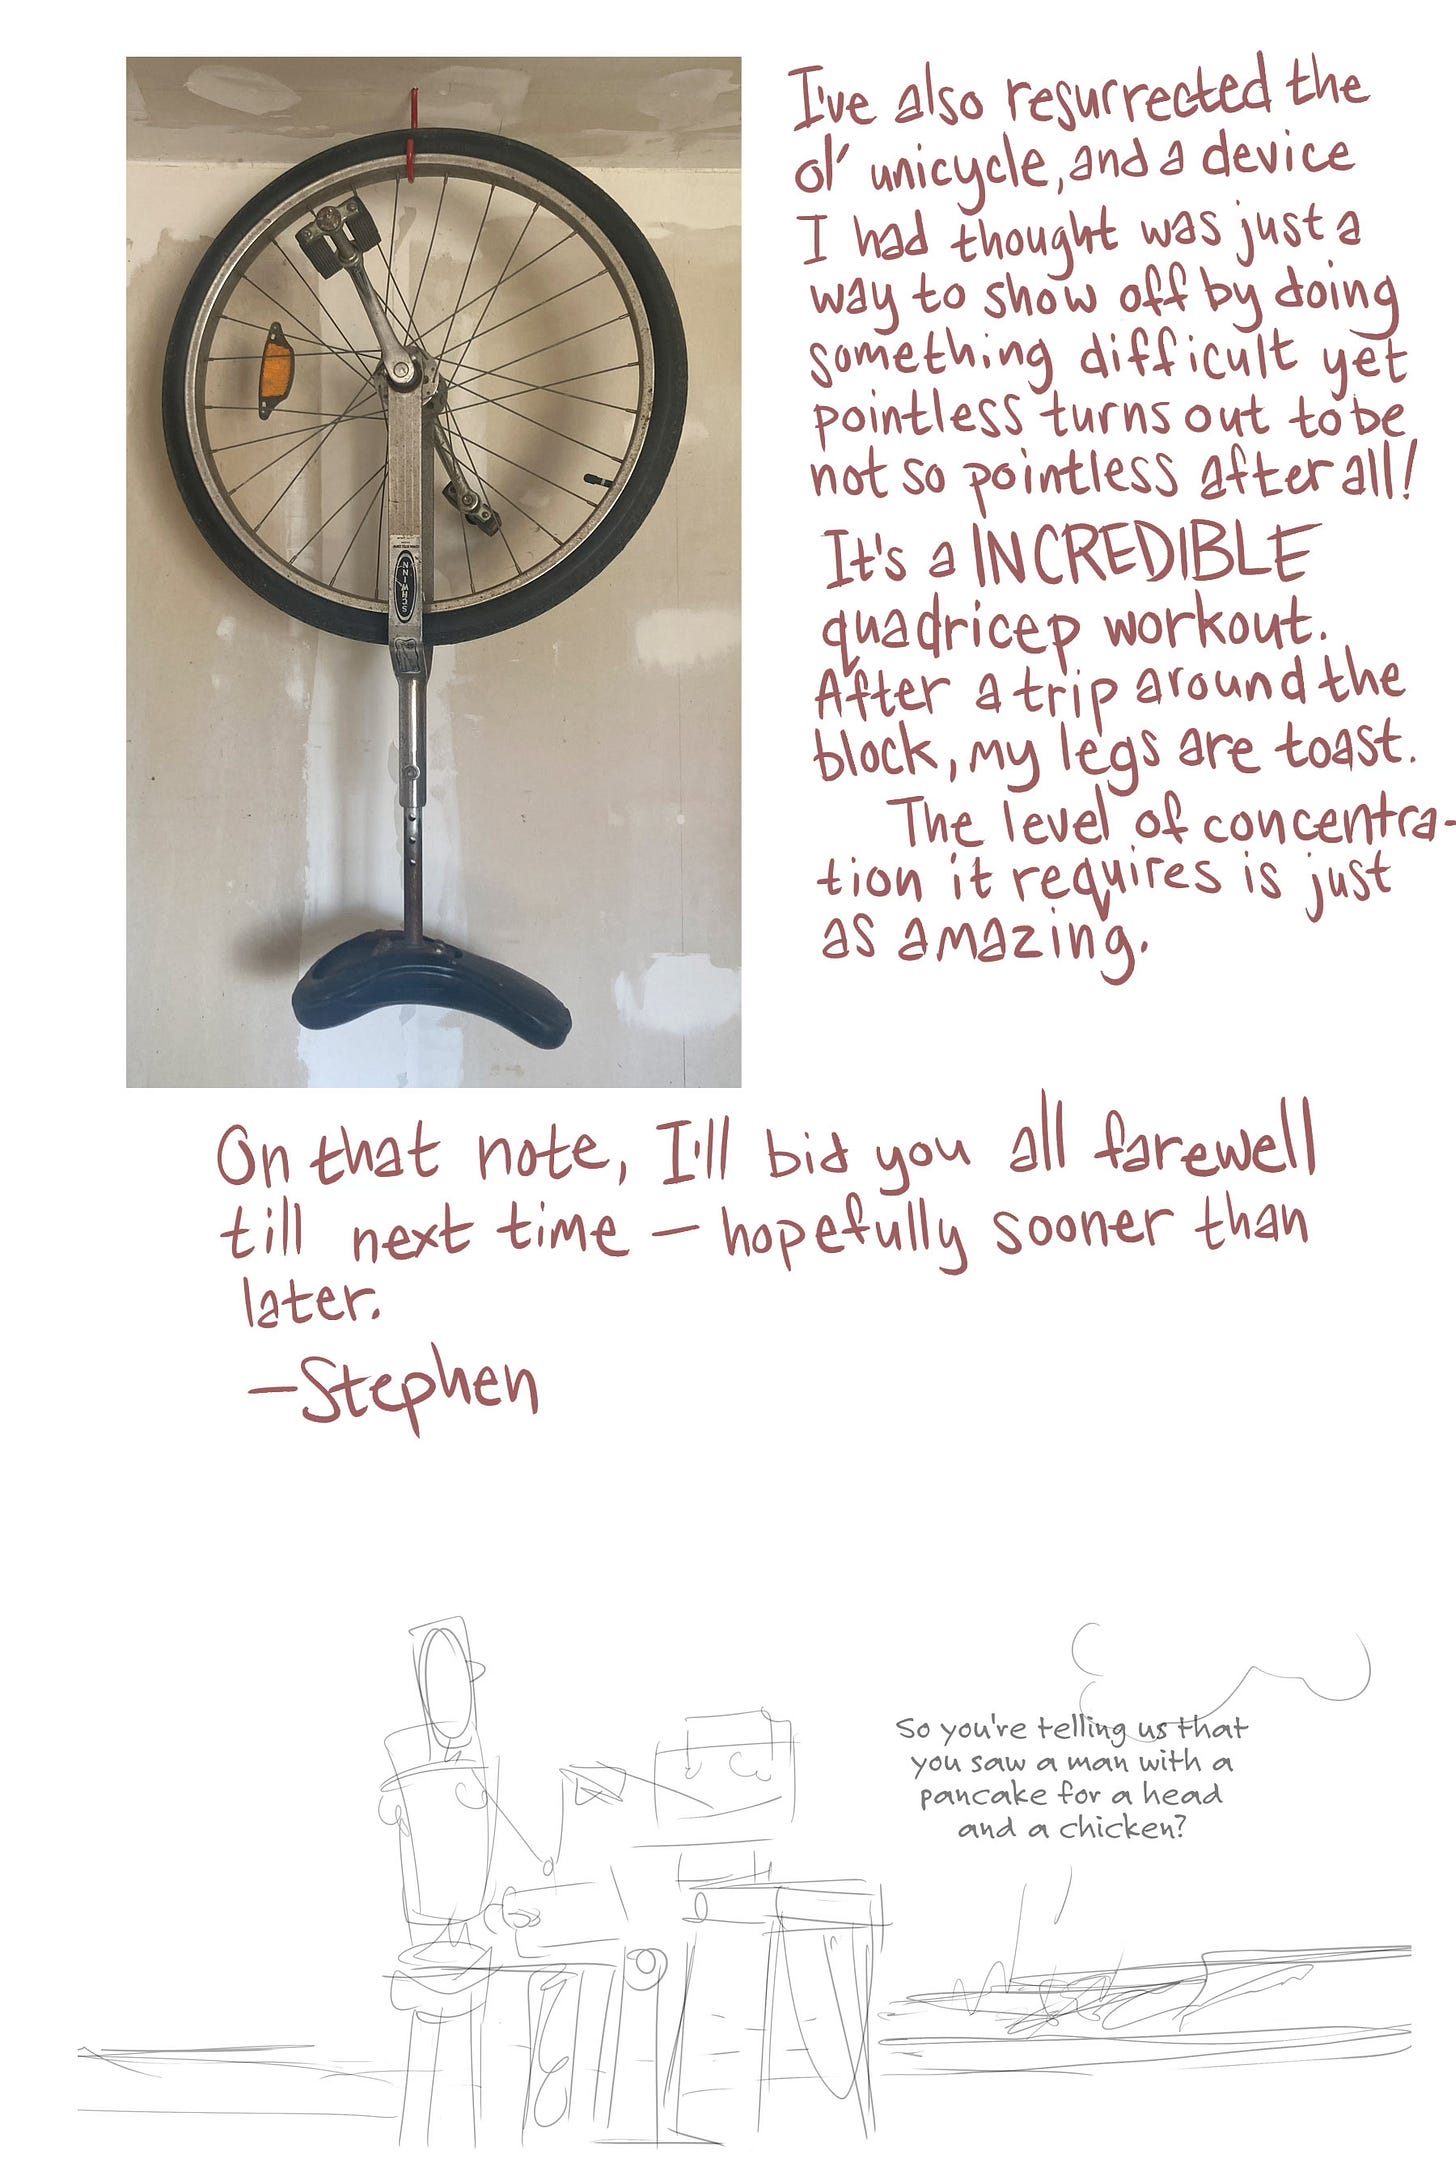 I've also resurrected the
ol' unicycle, and a device
I had thought was just a
way to show off by doing
something difficult yet
pointless turns out to be
not so pointless after all!
It's a INCREDIBLE
quadricep workout.
After a trip around the
block, my legs are toast.
The level of concentra-
tion it requires is just
as amazing.
SCHWINN
On that note, I'll bid you all farewell
till next time — hopefully sooner than
later.
—Stephen
So you're telling us that
you saw a man with a
pancake for a head
and a chicken?